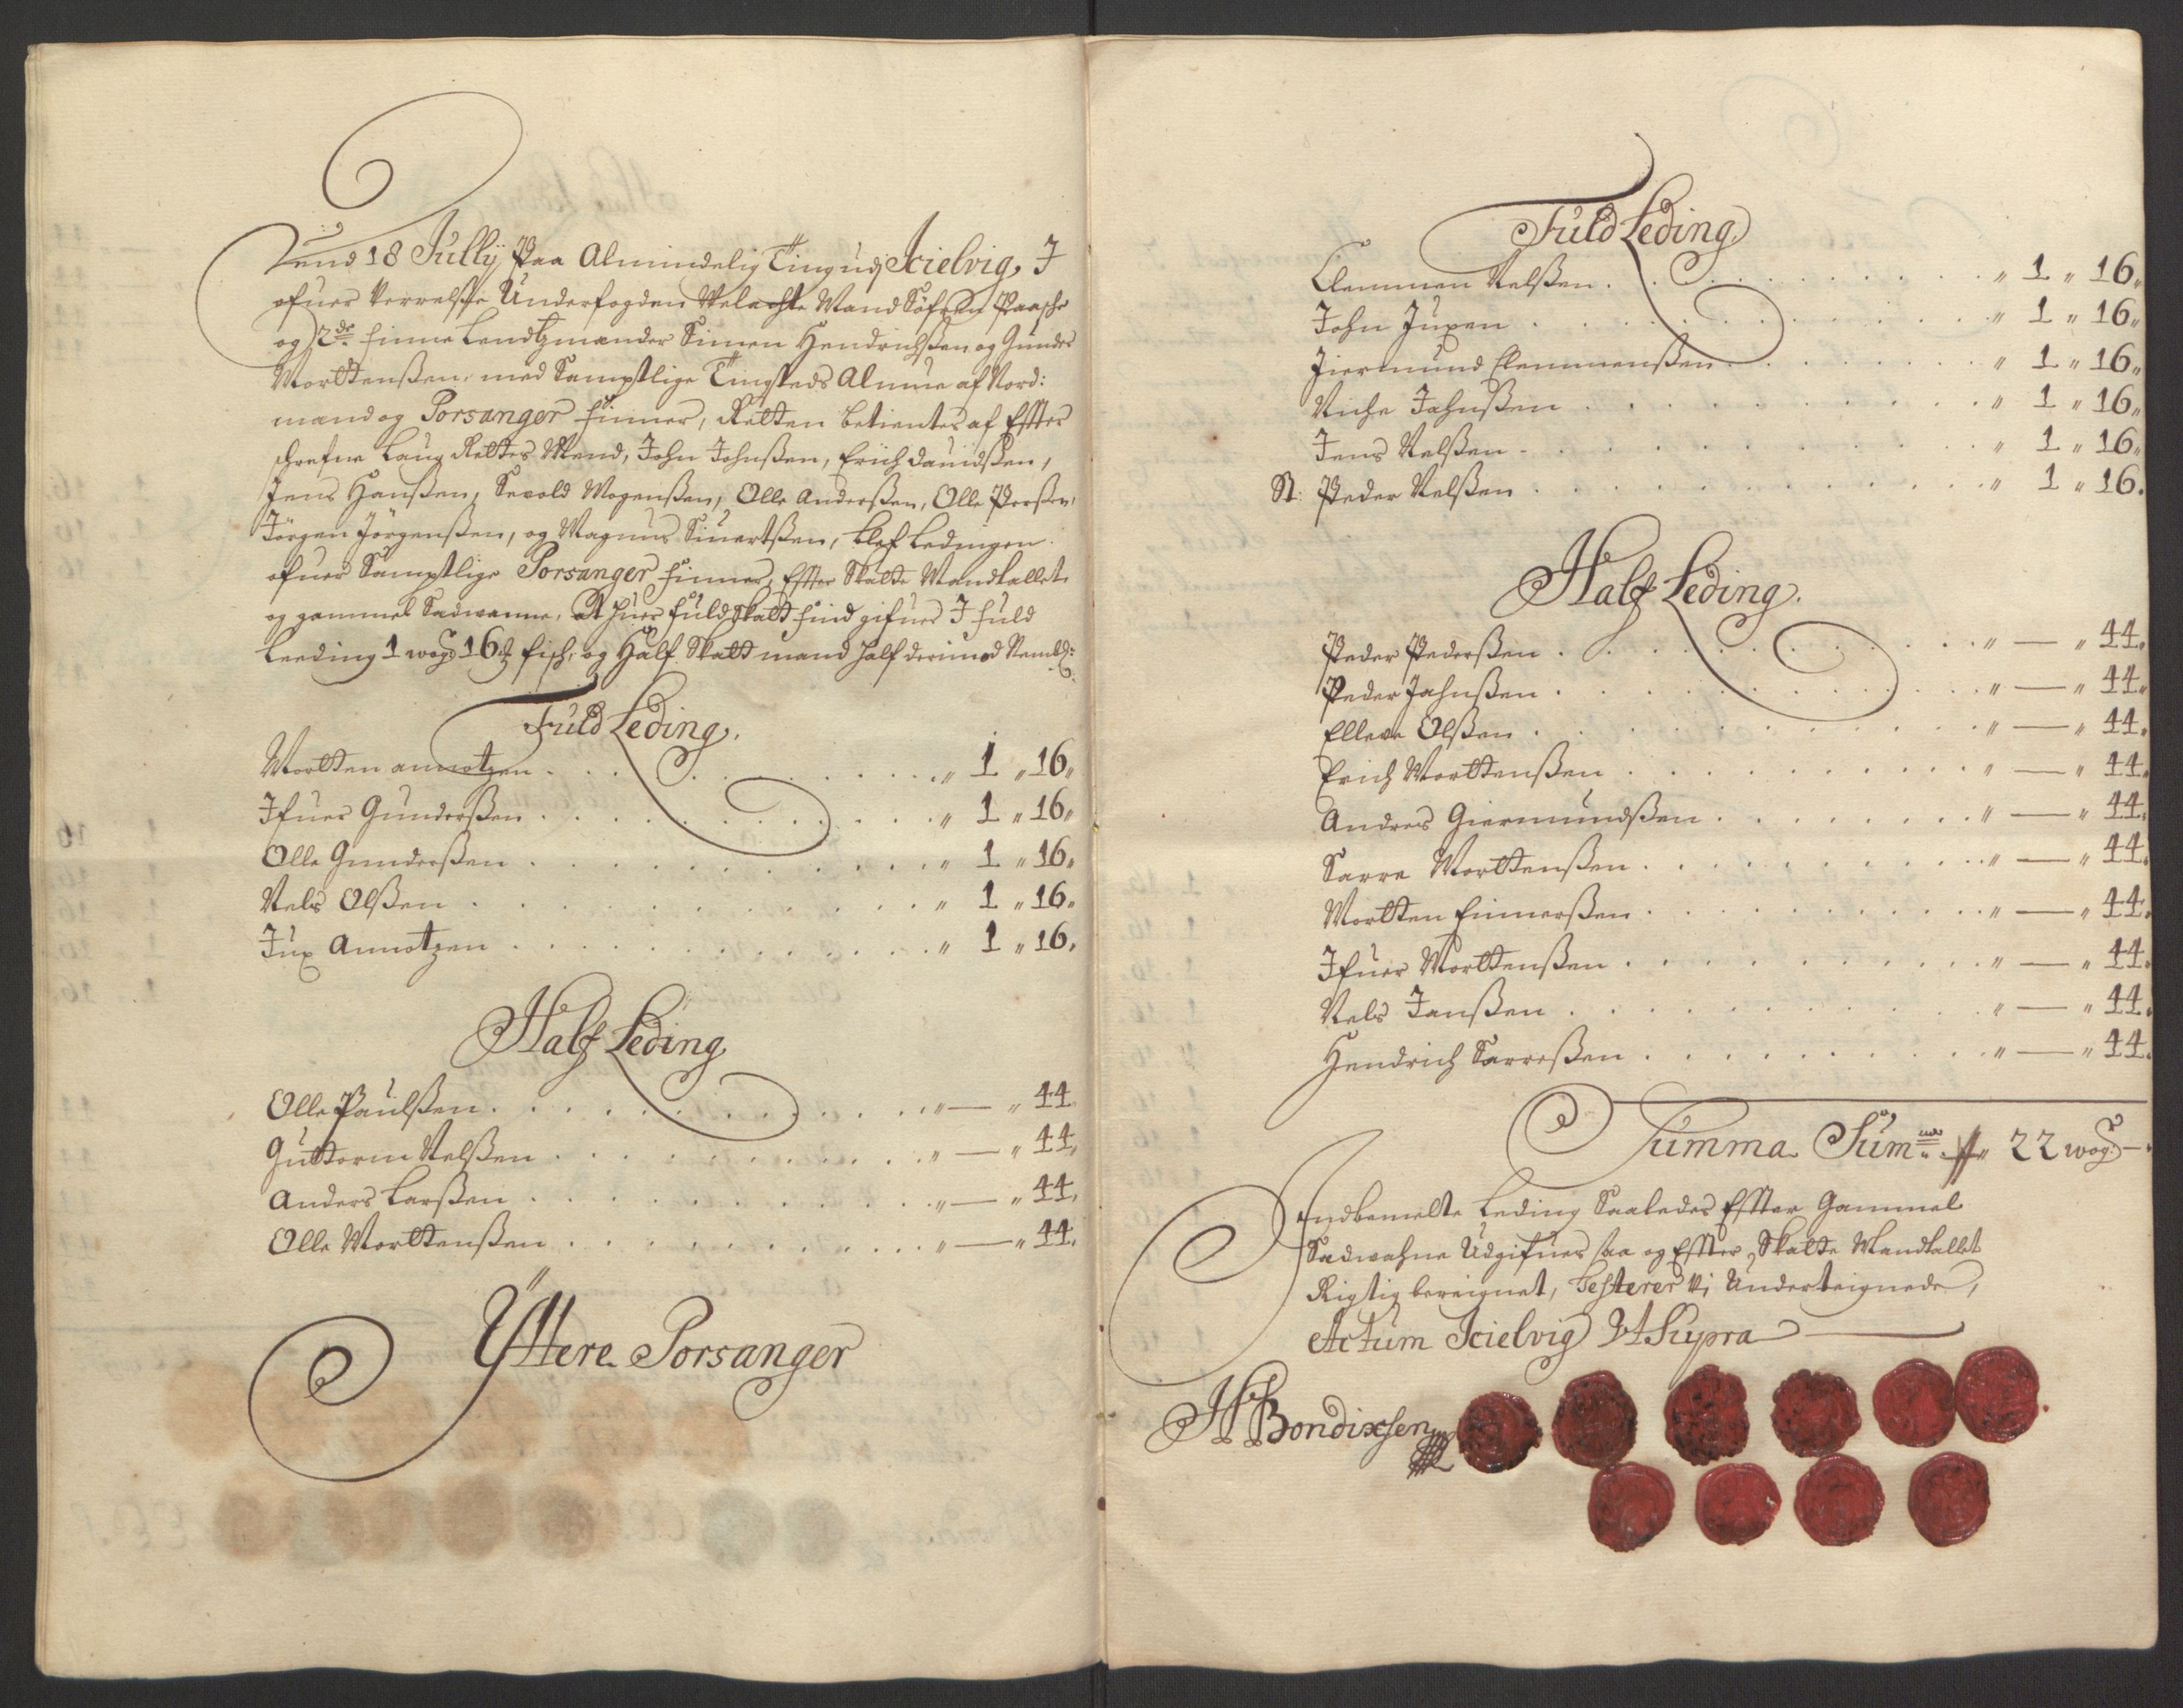 Dend 18 Jullÿ Paa Almindelig Ting udj Kielvig, I
ofuer verrelse Underfogden Velachte Mand Söfren Paasche
og 2de finne Lendtzmænder Simen Hendrichßen og Gunder
Morttenßen, med Samptlige Tingsteds Almue af Nord:
mand og Porsanger finner, Retten betientes af Effter
schrefne Laug Rettes Mend, John Johnßen, Erich Dauidßen,
Jens Hanßen, Sevold Mogenßen, Olle Anderßen, Olle Perßen,
Jörgen Jörgenßen, og Magnus Siuertßen, blef Ledingen
ofuer Samptlige Porsanger finner, Effter Skatte Mandtallet
og gammel Sadwanne, at huer fuld Skatt find gifuer I fuld
Leeding 1 wog 16 ℔ fisch, og Half Skatt mand half derimod Nembl:
Fuld Leding,
Mortten annotzen . . . " 1 " 16 "
Ifuer Gunderßen . . . " 1 " 16 "
Olle Gunderßen . . . " 1 " 16 "
Nels Olßen . . . " 1 " 16 "
Jux Annotzen . . . " 1 " 16 "
Half Leding
Olle Paulßen . . . " — " 44
Guttorm Nelßen . . . " — " 44 "
Anders Larßen . . . " — " 44 "
Olle Morttenßen . . . " — " 44 "
Ÿttere Porsanger
Fuld Leding
Clemmen Nelßen . . . " 1 " 16 "
John Juxen . . . " 1 " 16 "
Jiermund Clemmenßen . . . " 1 " 16 "
Niche Johnßen . . . " 1 " 16 "
Jens Nelßen . . . " 1 " 16 "
St: Peder Nelßen . . . " 1 " 16 "
Half Leding.
Peder Pederßen . . . " — " 44 "
Peder Johnßen . . . " — " 44 "
Elleve Olßen . . . " — " 44 "
Erich Morttenßen . . . " — " 44 "
Andres Giermundßen . . . " — " 44 "
Sarre Morttenßen . . . " — " 44 "
Mortten Finnerßen . . . " — " 44 "
Ifuer Morttenßen . . . " — " 44 "
Nels Janßen . . . " — " 44 "
Hendrich Sarreßen . . . " — " 44 "
Summa Sum:rum " 22 wog —
Indbemelte Leding Saaledes Effter Gammel
Sadwahne Udgifues saa og Effter Skatte Mandtallet
Rigtig bereignet, Testerer Vi Underteignede,
Actum Kielvig Ut Supra
H Bondixsen